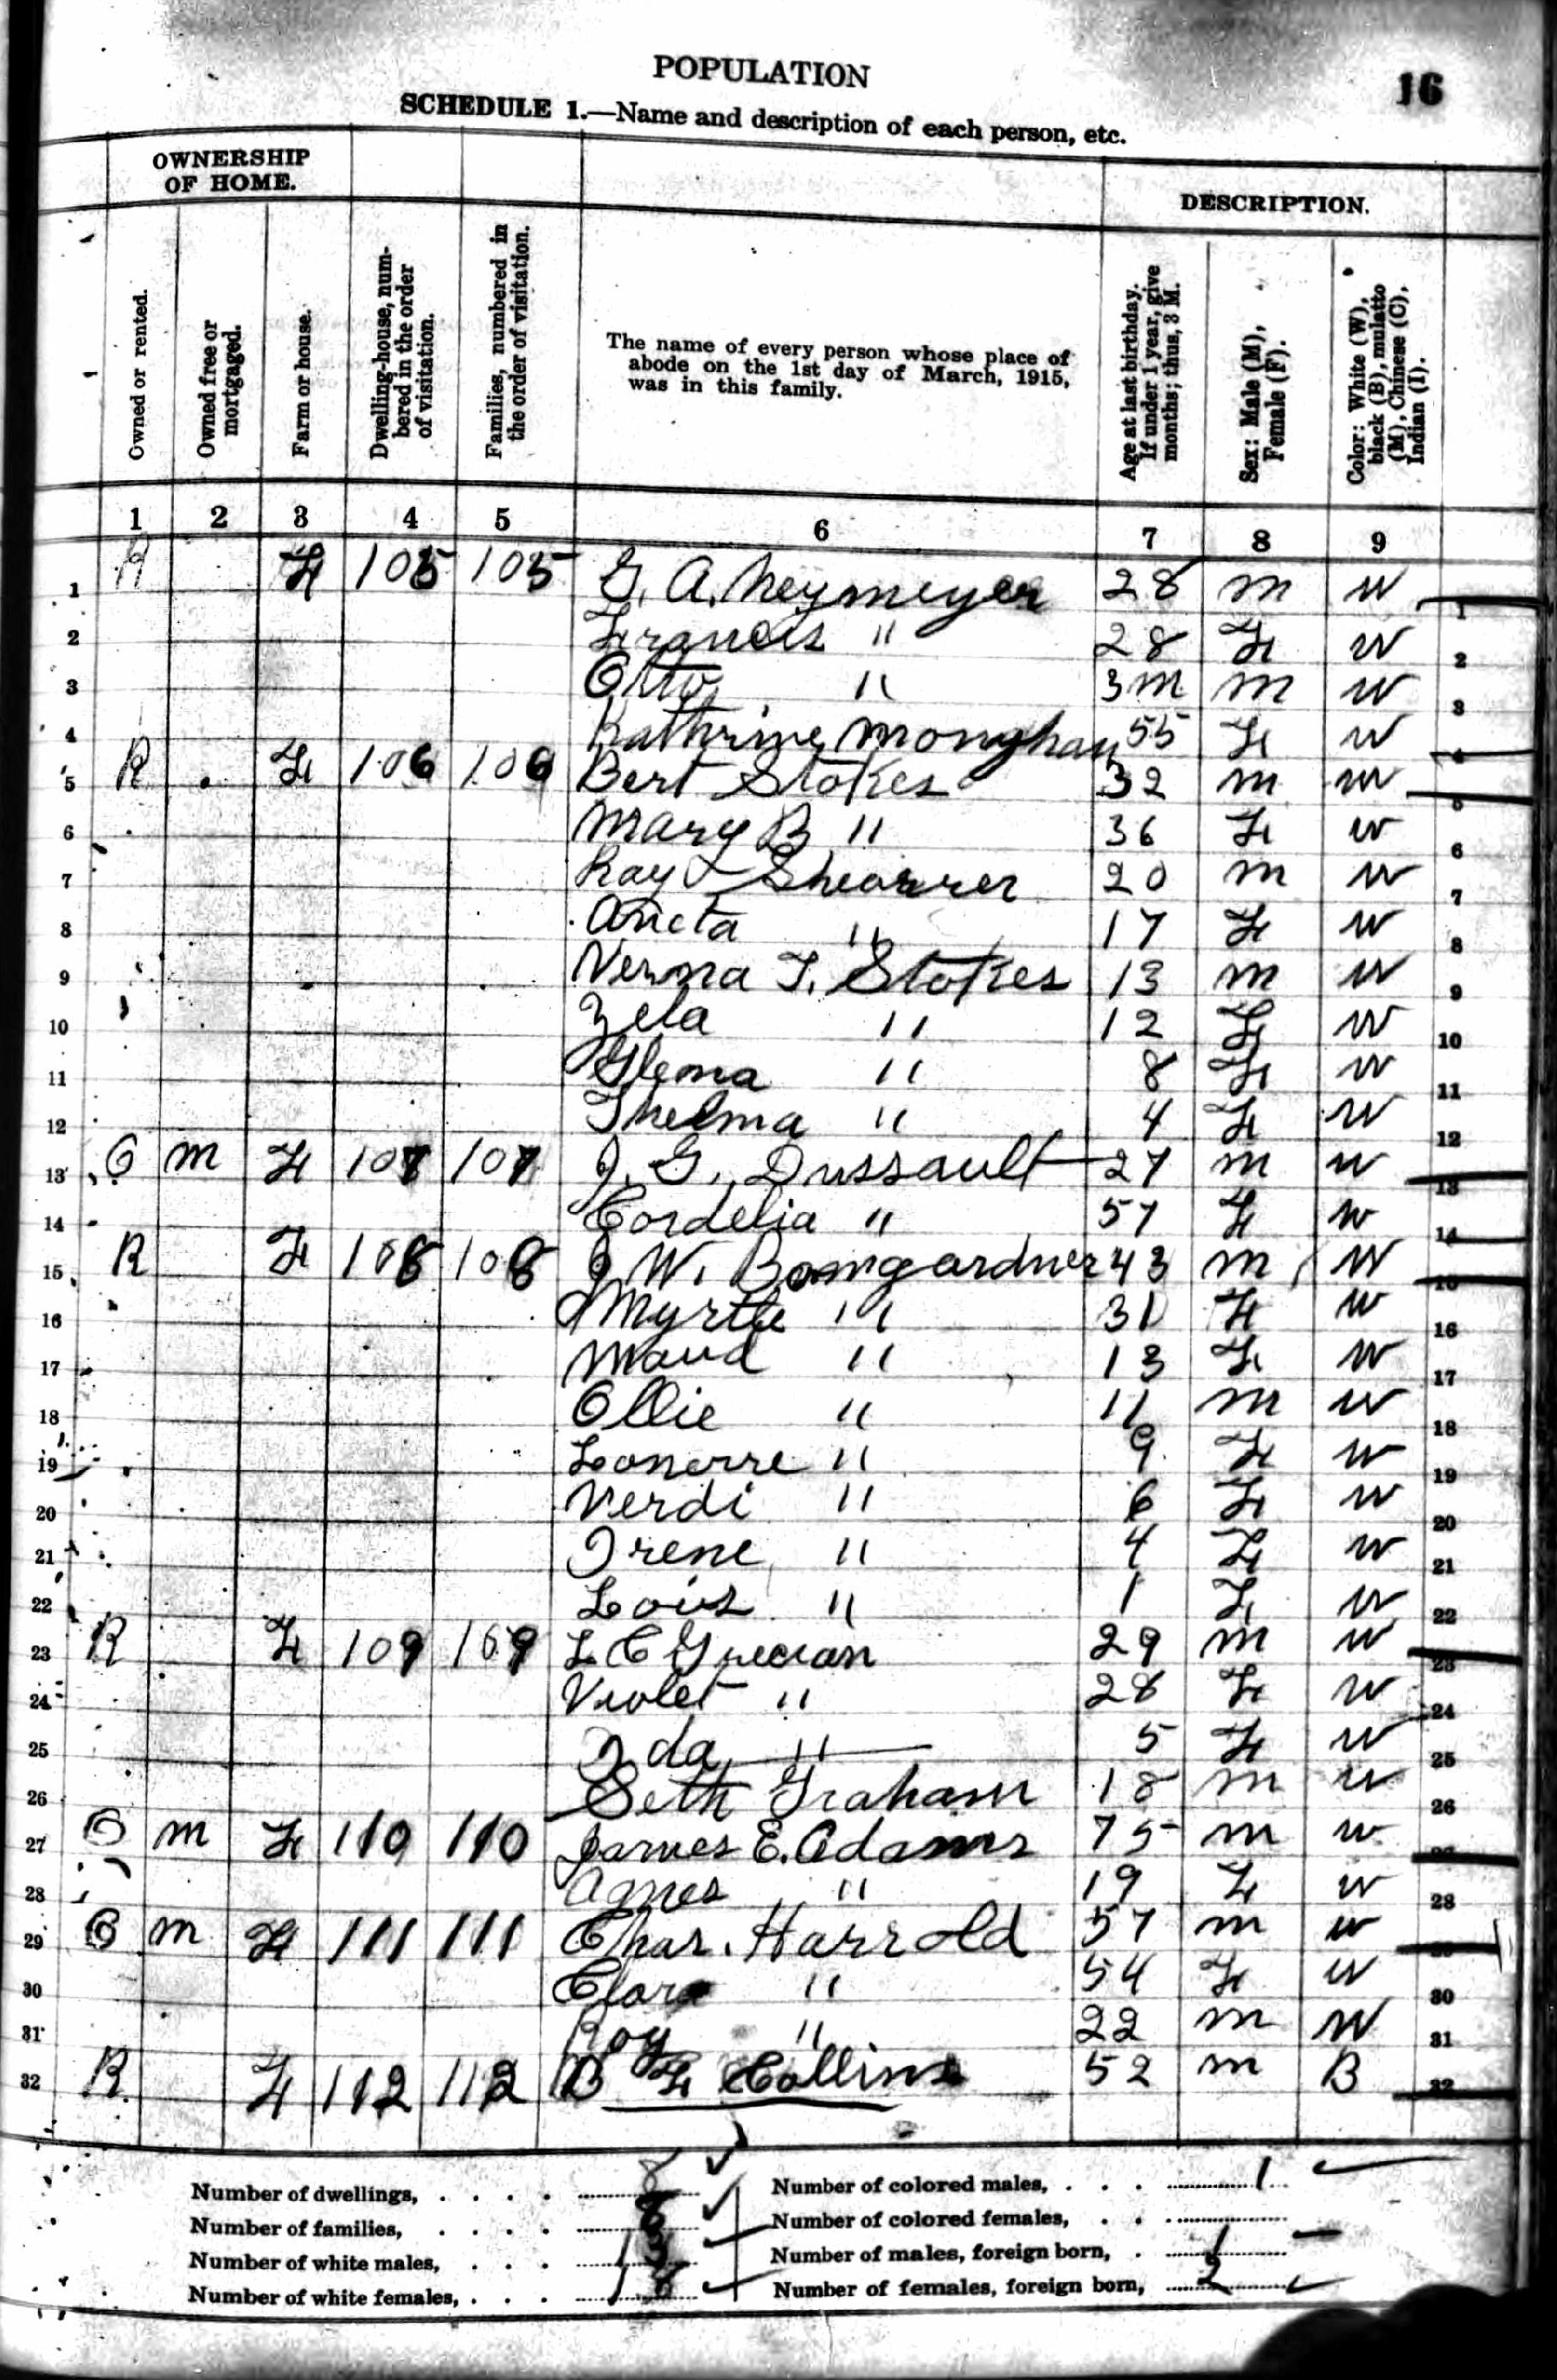 POPULATION
16
SCHEDULE 1.—Name and description of each person, etc.
OWNERSHIP
OF HOME.
DESCRIPTION.
Owned or rented.
Owned free or
mortgaged.
Farm or house.
Dwelling-house, num-
bered in the order
of visitation.
Families, numbered in
the order of visitation.
The name of every person whose place of
abode on the 1st day of March, 1915,
was in this family.
Age at last birthday.
If under 1 year, give
months; thus, 3 M.
Sex: Male (M),
Female (F).
Color: White (W),
black (B), mulatto
(M), Chinese (C),
Indian (I).
1 2 3 4 5 6 7 8 9
1 R F 105 105 G. A. Neymeyer 28 m W 1
2 Francis " 28 F W 2
3 Otto " 3m m W 3
4 Kathrine Monghan 55 F W 4
5 R F 106 106 Bert Stokes 32 m W 5
6 Mary B " 36 F W 6
7 Ray Shearrer 20 m W 7
8 Aneta " 17 F W 8
9 Verona F. Stokes 13 m W 9
10 Zela " 12 F W 10
11 Glema " 8 F W 11
12 Thelma " 4 F W 12
13 O m F 107 107 J. G. Dussault 27 m W 13
14 Cordelia " 57 F W 14
15 R F 108 108 J W. Bomgardner 43 m W 15
16 Myrtle " 31 F W 16
17 Maud " 13 F W 17
18 Ollie " 11 m W 18
19 " 9 F W 19
20 Verdi " 6 F W 20
21 Irene " 4 F W 21
22 Lois " 1 F W 22
23 R F 109 109 L C Grecian 29 m W 23
24 Violet " 28 F W 24
25 Ida " 5 F W 25
26 Seth Graham 18 m W 26
27 O m F 110 110 James E. Adams 75 m W 27
28 Agnes " 19 F W 28
29 O m F 111 111 Chas. Harrold 57 m W 29
30 Clara " 54 F W 30
31 Roy " 22 m W 31
32 R F 112 112 B F Collins 52 m B 32
Number of dwellings, . . . . 8
Number of colored males, . . . 1
Number of families, . . . . 8
Number of colored females, . . .
Number of white males, . . . 13
Number of males, foreign born, . 1
Number of white females, . . . 18
Number of females, foreign born, 2